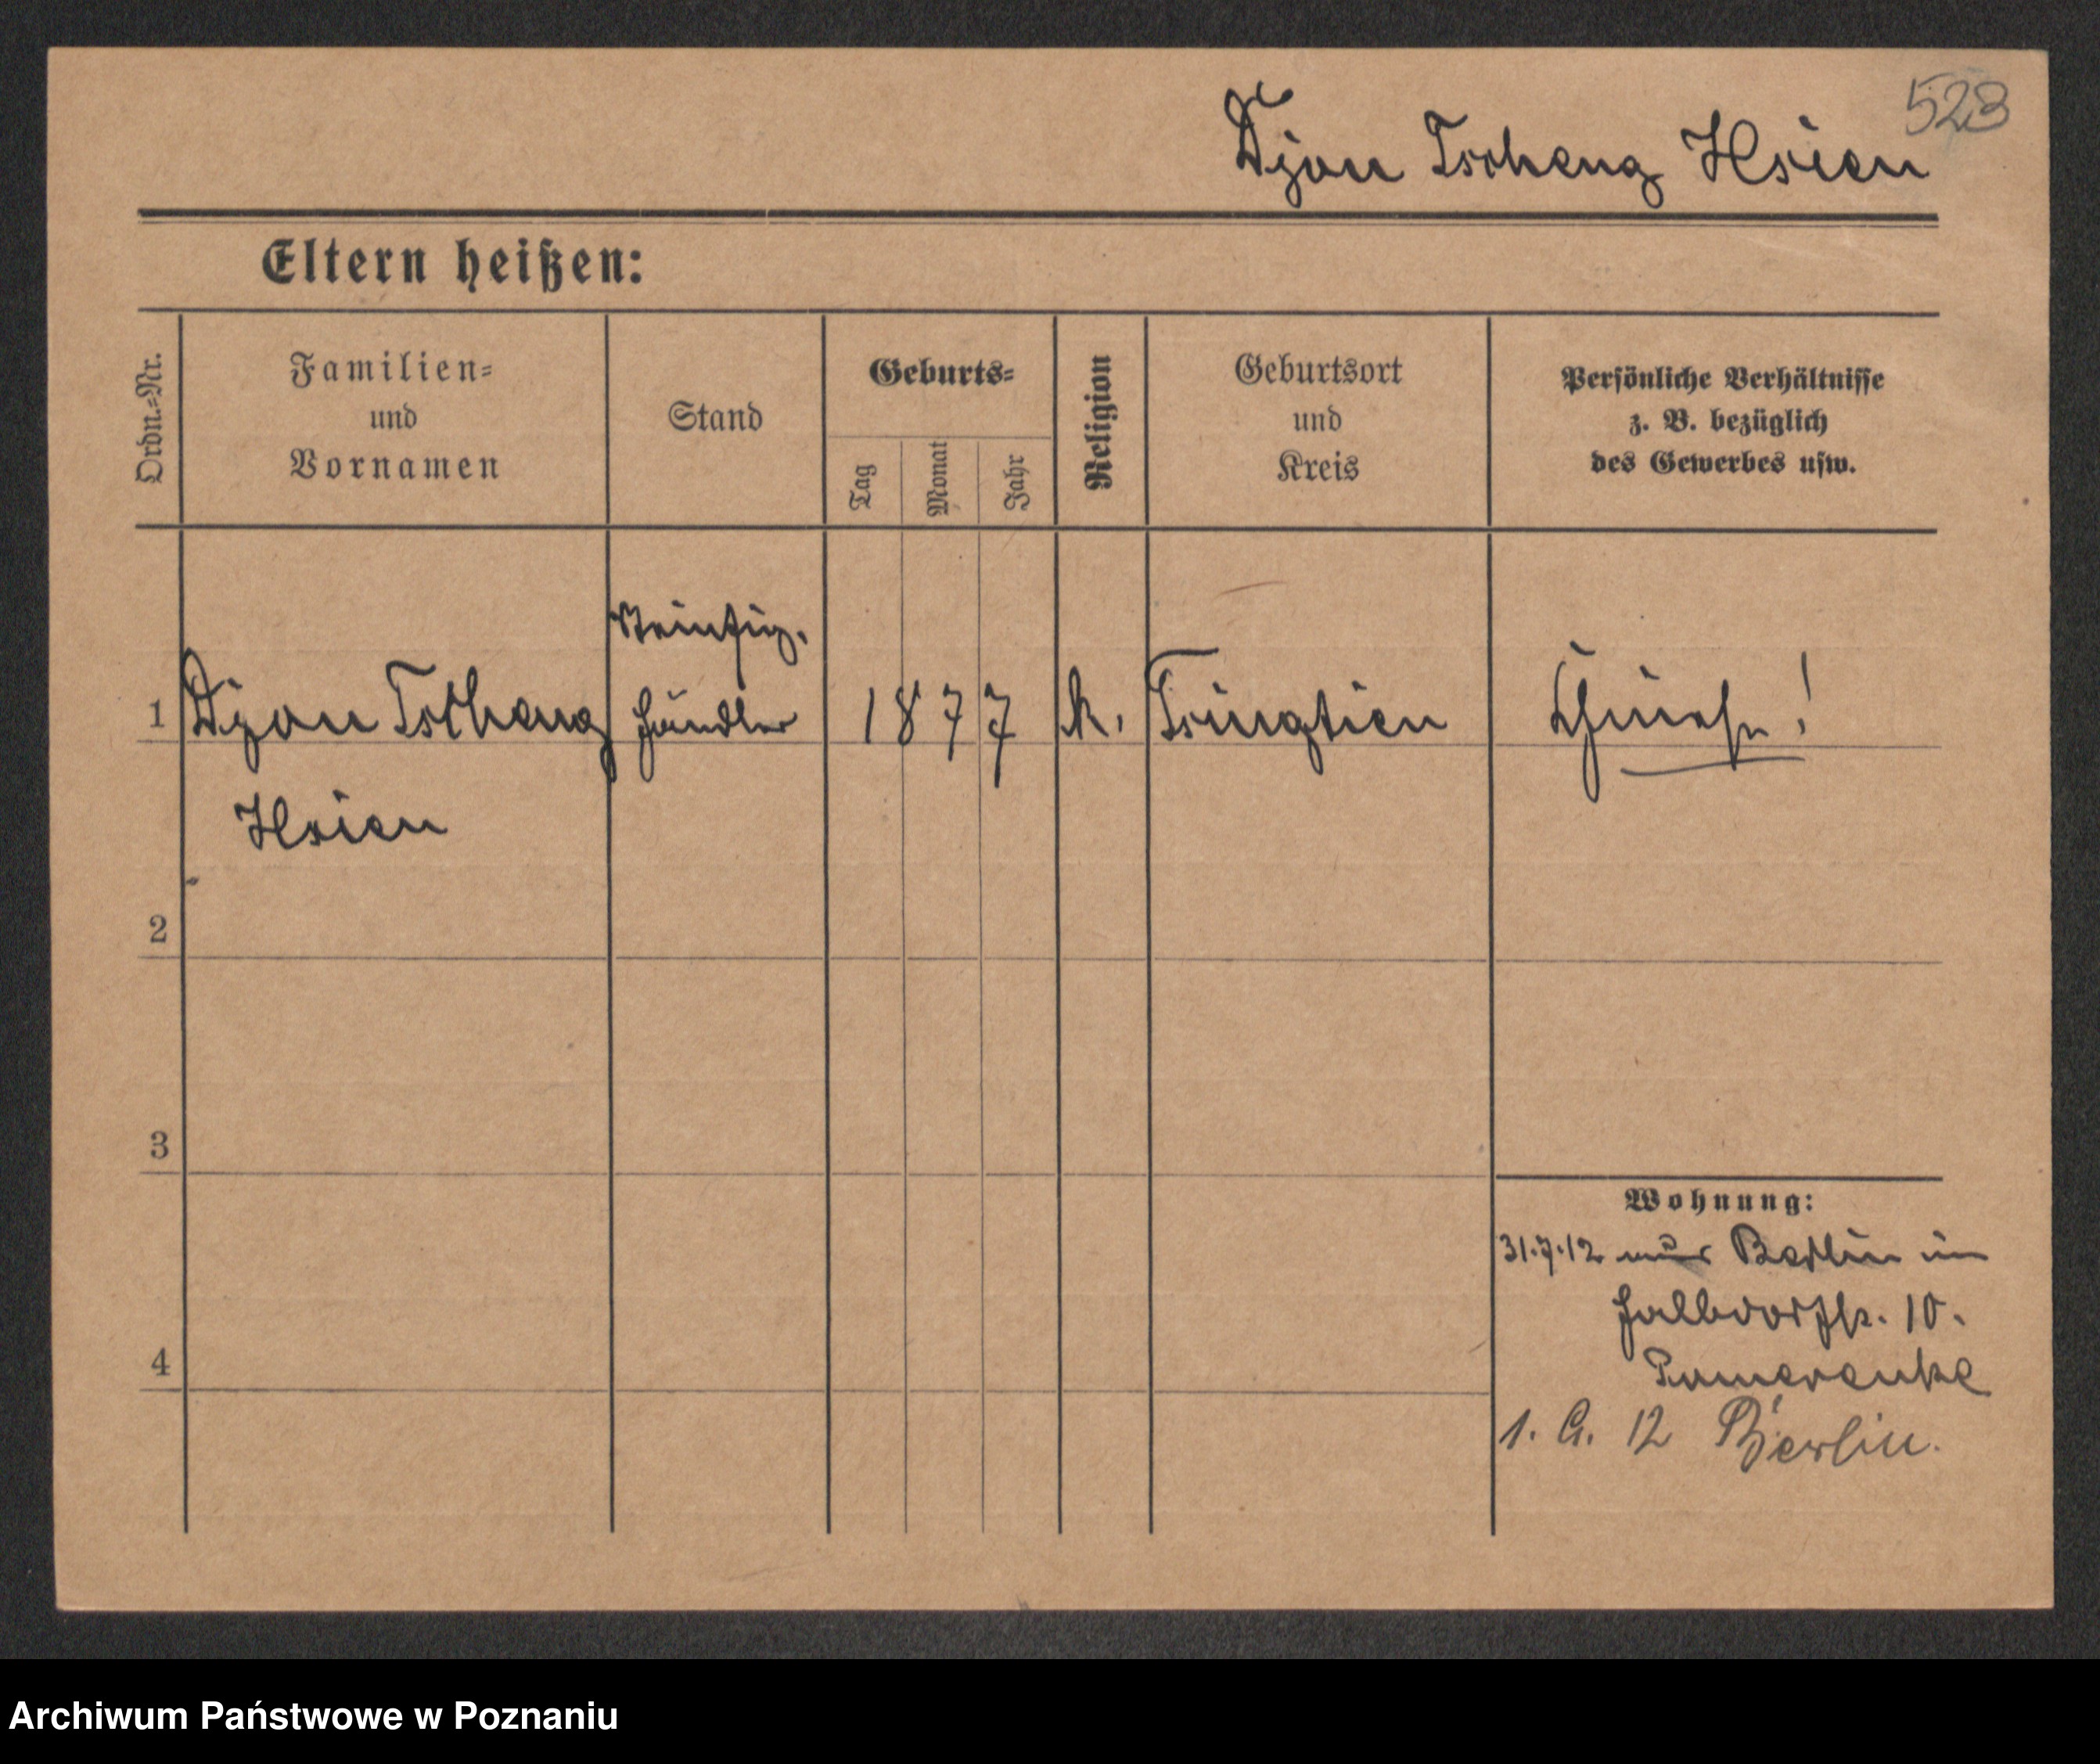 523
Djou Tscheng Hsien
Eltern heißen:
Ordn.-Nr.
Familien-
und
Vornamen
Stand
Geburts-
Tag
Monat
Jahr
Religion
Geburtsort
und
Kreis
Persönliche Verhältnisse
z. B. bezüglich
des Gewerbes usw.
1
Djou Tscheng
Hsien
händler
1877
k.
Tsingtien
Chinese!
2
3
4
Wohnung:
31.7.12 Berlin in
Halbdorfstr. 10.
Pomerenke
1. 12 Berlin.
Archiwum Państwowe w Poznaniu